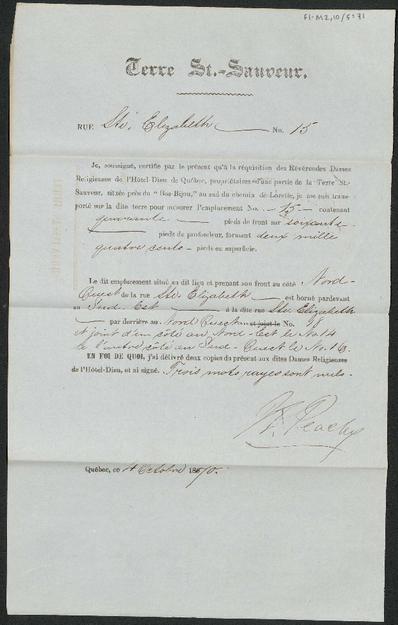 F1-M2,10/5:31
Terre St.-Sauveur.
RUE Ste. Elizabeth No. 15
Je, soussigné, certifie par le présent qu'à la réquisition des Révérendes Dames
Religieuses de l'Hôtel-Dieu de Québec, propriétaires d'une partie de la Terre St.-
Sauveur, située près du "Bas-Bijou," au sud du chemin de Lorette, je me suis trans-
porté sur la dite terre pour mesurer l'emplacement No. 15 contenant
quarante pieds de front sur soixante
pieds de profondeur, formant deux mille
quatre cents pieds en superficie.
Le dit emplacement situé au dit lieu et prenant son front au côté Nord-
Ouest de la rue Ste. Elizabeth est borné pardevant
au Sud-Est à la dite rue Ste. Elizabeth
par derrière au Nord Ouest et joint le No. 18
et joint d'un côté au Nord-Est le No. 14
de l'autre côté au Sud-Ouest le No. 16.
EN FOI DE QUOI, j'ai délivré deux copies du présent aux dites Dames Religieuses
de l'Hôtel-Dieu, et ai signé. Trois mots rayés sont nuls.
Peachy
Québec, ce 4 Octobre 1870.